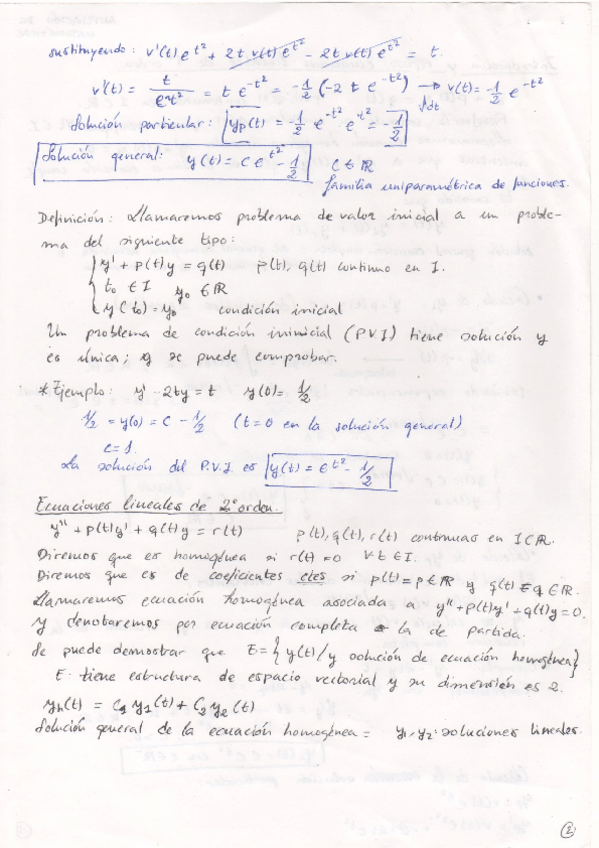 sustituyendo: v'(t) e^{t²} + 2t v(t) e^{t²} - 2t v(t) e^{t²} = t.
v'(t) = t/e^{t²} = t e^{-t²} = -1/2 (-2 t e^{-t²}) → ∫dt v(t) = -1/2 e^{-t²}
Solución particular: yp(t) = -1/2 e^{-t²} e^{t²} = -1/2
Solución general: y(t) = c e^{t²} - 1/2 C ∈ ℝ
familia uniparamétrica de funciones.
Definición: Llamaremos problema de valor inicial a un proble-
ma del siguiente tipo:
{ y' + p(t)y = q(t) p(t), q(t) continuo en I.
t₀ ∈ I y₀ ∈ ℝ
y(t₀) = y₀ condición inicial
Un problema de condición ininicial (P.V.I) tiene solución y
es única; y se puede comprobar.
* Ejemplo: y' - 2ty = t y(0) = 1/2
1/2 = y(0) = C - 1/2 (t=0 en la solución general)
c = 1.
La solución del P.V.I es y(t) = e^{t²} - 1/2
Ecuaciones lineales de 2º orden.
y'' + p(t)y' + q(t)y = r(t) p(t), q(t), r(t) continuas en I ⊂ ℝ.
Diremos que es homogénea si r(t) = 0 ∀t ∈ I.
Diremos que es de coeficientes ctes si p(t) = p ∈ ℝ y q(t) = q ∈ ℝ.
Llamaremos ecuación homogénea asociada a y'' + p(t)y' + q(t)y = 0.
Y denotaremos por ecuación completa a la de partida.
Se puede demostrar que E = { y(t) / y solución de ecuación homogénea}
E: tiene estructura de espacio vectorial y su dimensión es 2.
yh(t) = C₁ y₁(t) + C₂ y₂(t)
Solución general de la ecuación homogénea = y₁, y₂: soluciones lineales.
2